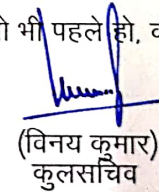 भी पहले हो,
(विनय कुमार)
कुलसचिव